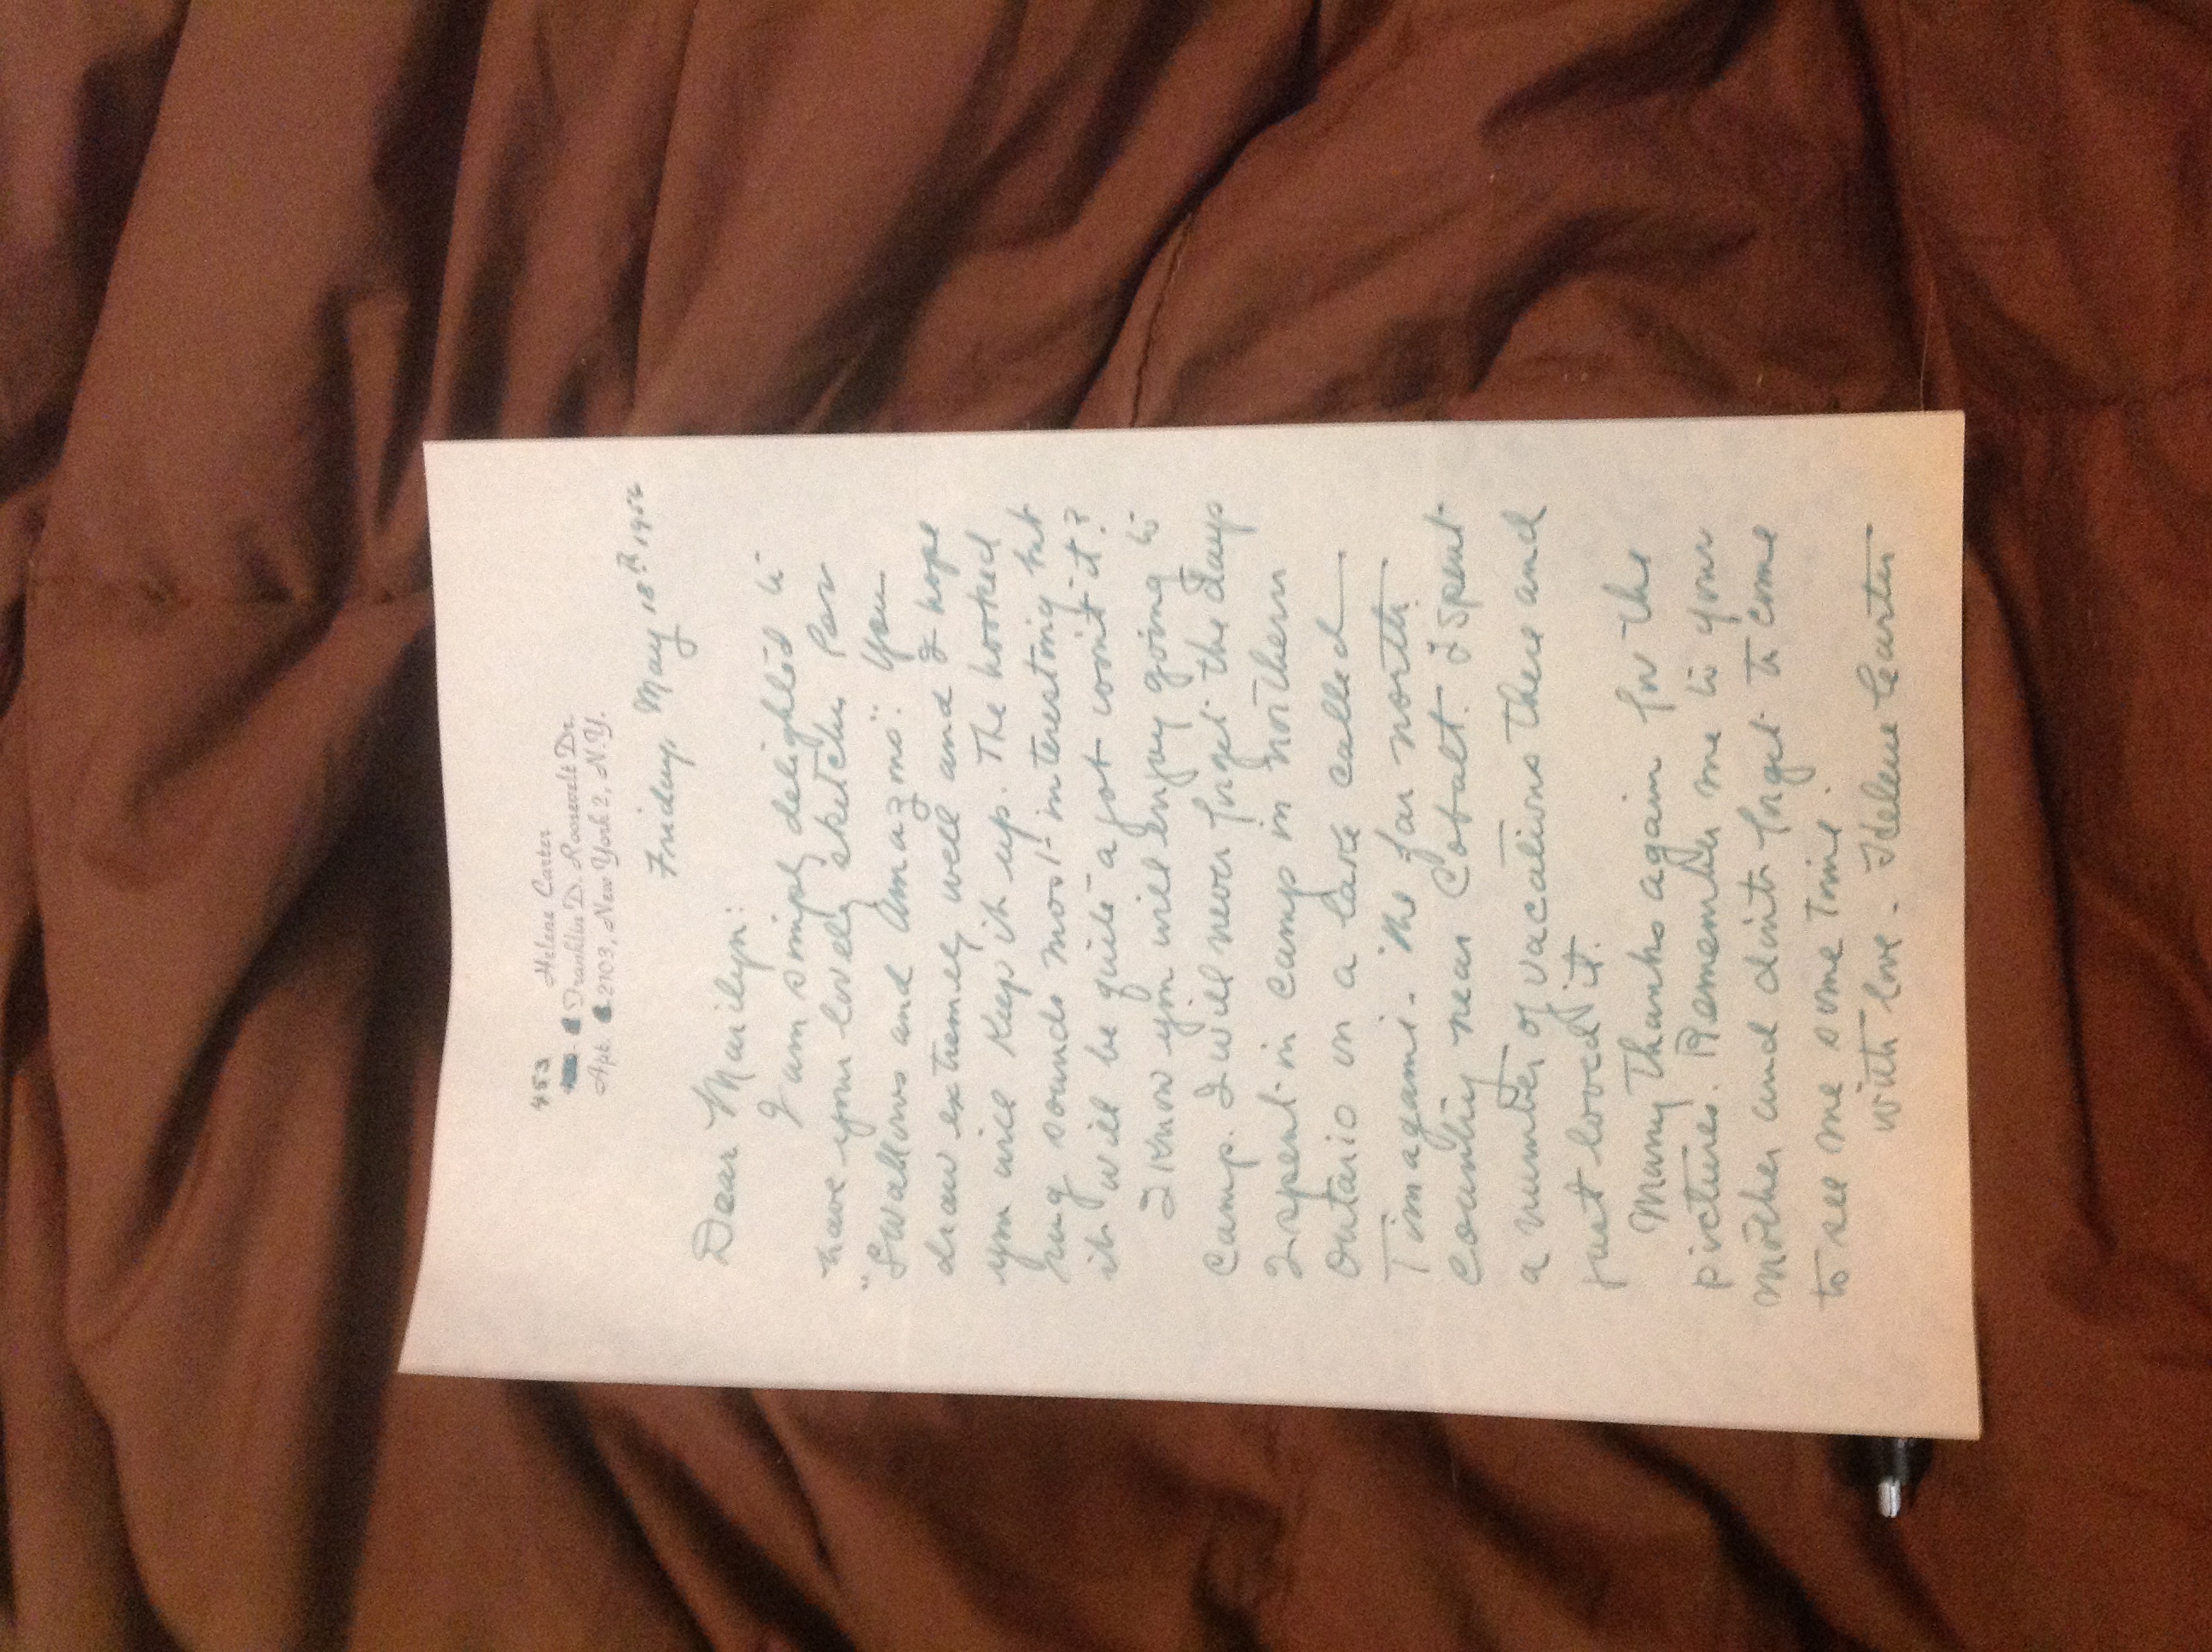 Helene Carter
453 Franklin D. Roosevelt Dr.
Apt. 2103, New York 2, N.Y.
Friday May 18th 1956
Dear Marilyn:
I am simply delighted to
have your lovely sketches for
"Swallows and Amazons". You
draw extremely well and I hope
you will keep it up. The hooked
rug sounds most interesting but
it will be quite a job won't it?
I know you will enjoy going to
camp. I will never forget the days
I spent in camp in northern
Ontario on a lake called
Timagami - the far north
country near Cobalt. I spent
a number of vacations there and
just loved it.
Many thanks again for the
pictures. Remember me to your
mother and don't forget to come
to see me some time.
with love - Helene Carter